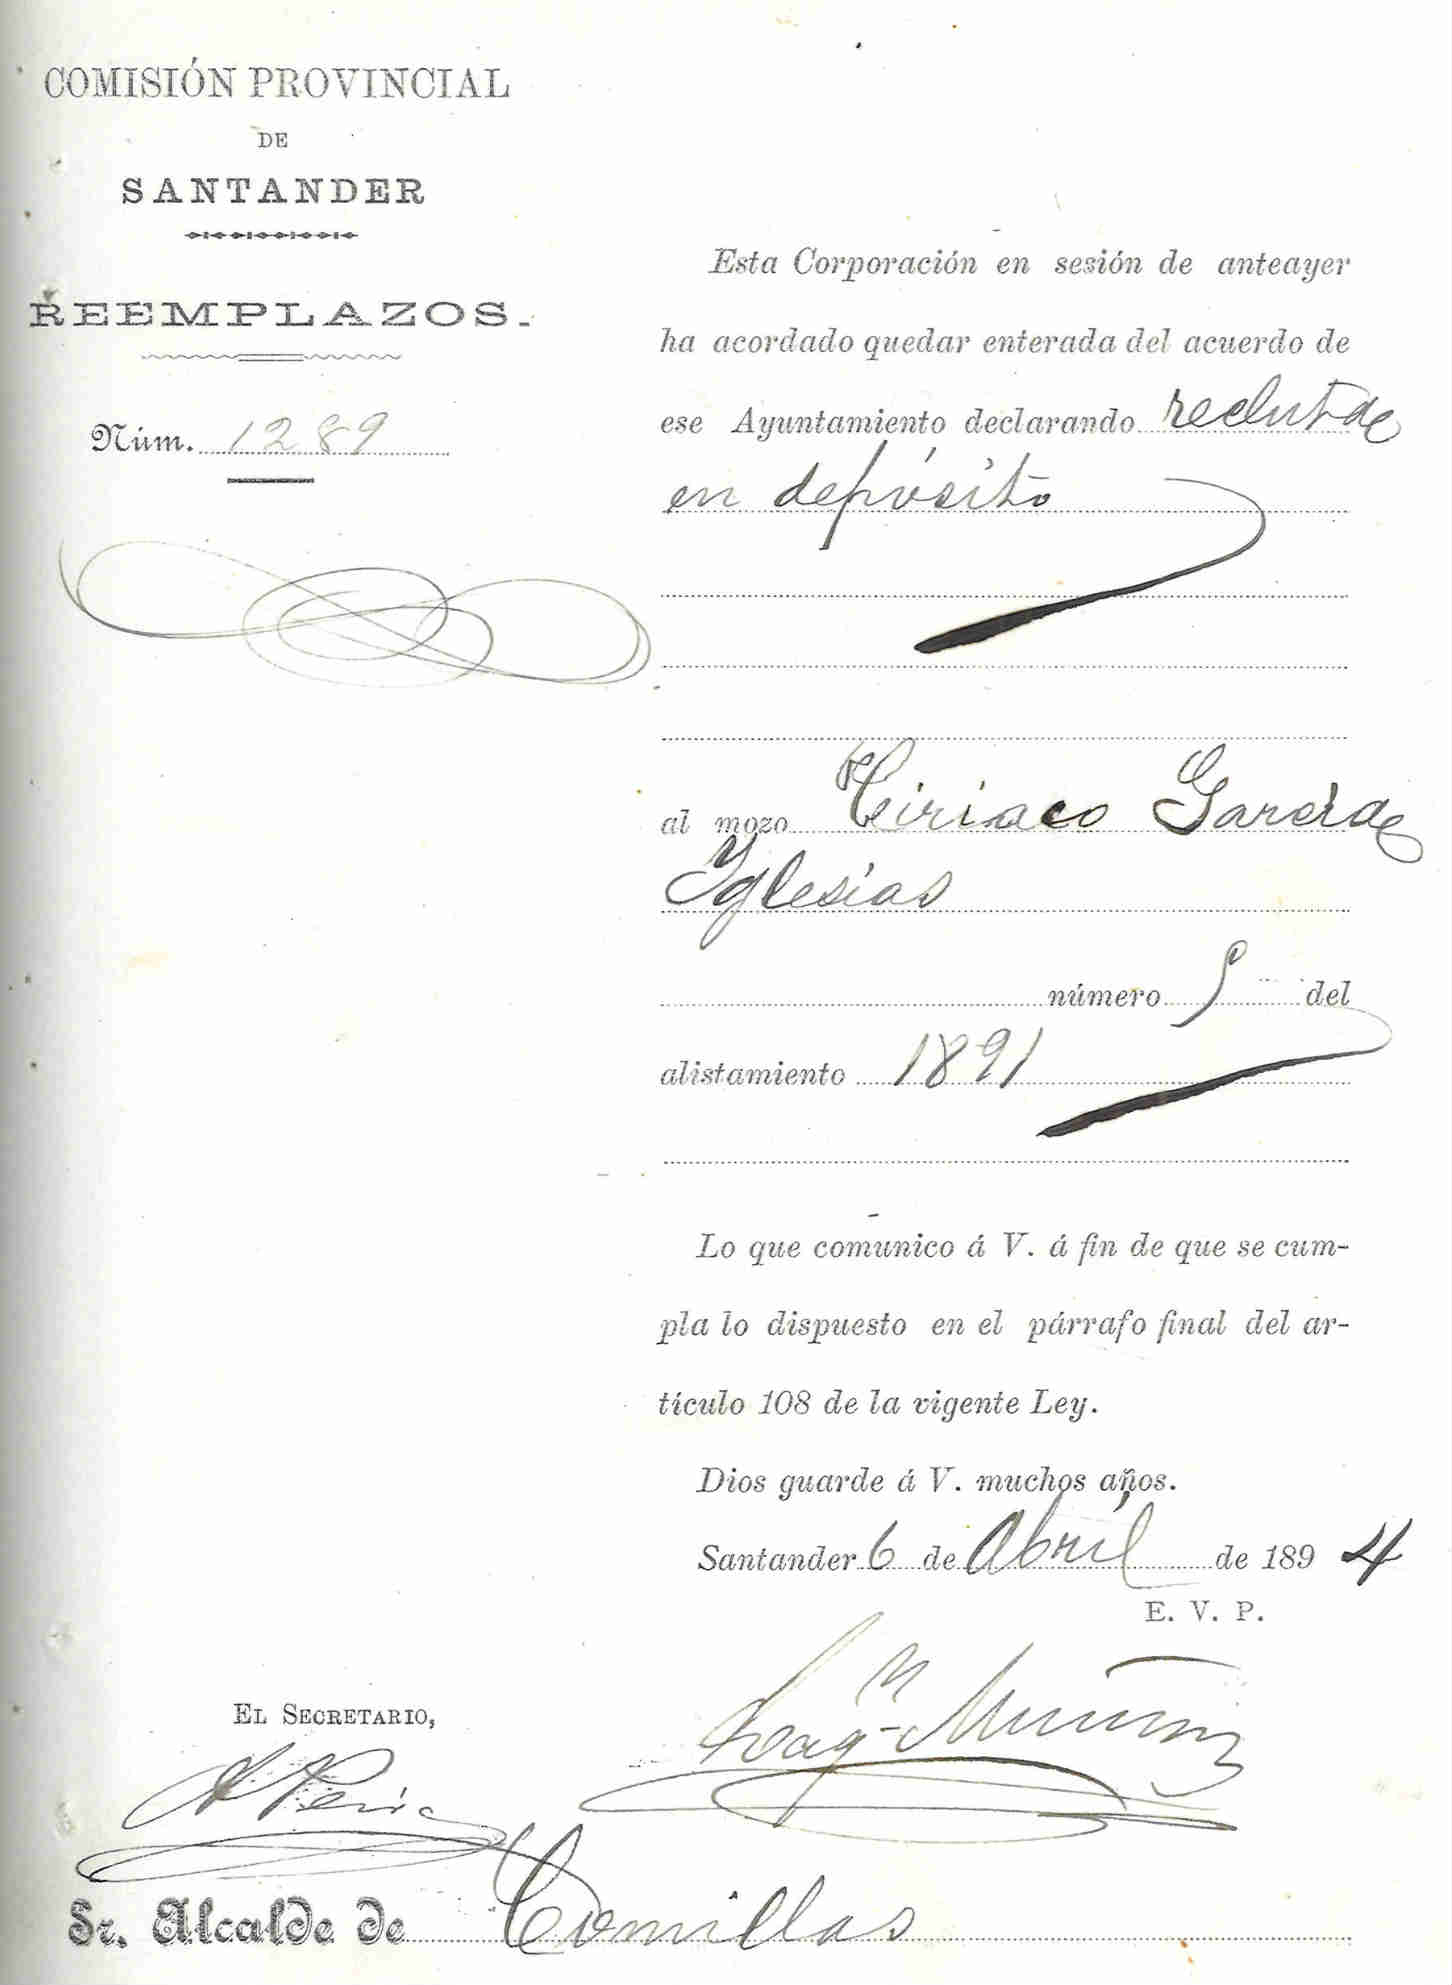 COMISIÓN PROVINCIAL
DE
SANTANDER
REEMPLAZOS.
Núm. 1289
Esta Corporación en sesión de anteayer
ha acordado quedar enterada del acuerdo de
ese Ayuntamiento declarando recluta
en depósito
al mozo Ciriaco García
Yglesias
número 9 del
alistamiento 1891
Lo que comunico á V. á fin de que se cum-
pla lo dispuesto en el párrafo final del ar-
tículo 108 de la vigente Ley.
Dios guarde á V. muchos años.
Santander 6 de Abril de 1894
E. V. P.
EL SECRETARIO,
Sr. Alcalde de Comillas